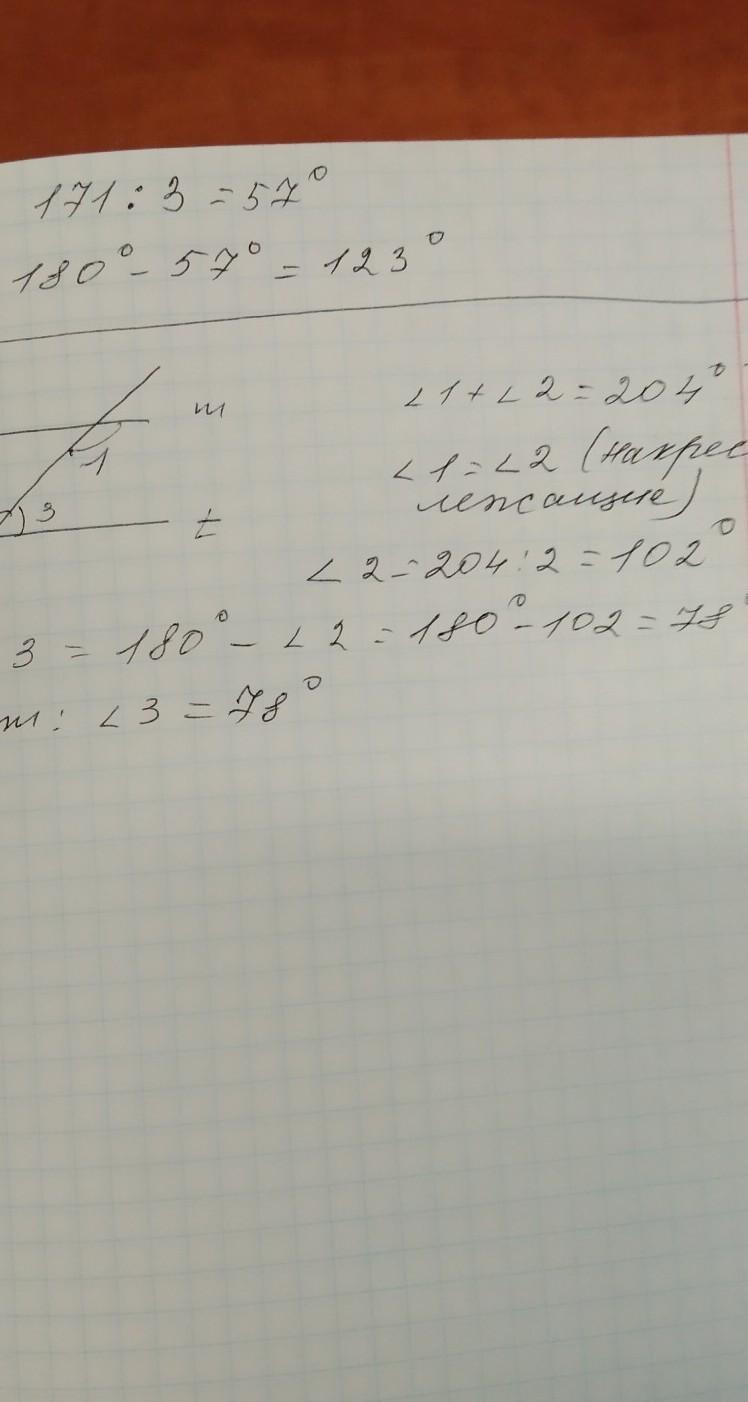 171 : 3 = 57°
180° - 57° = 123°
m
1
3
t
∠1 + ∠2 = 204°
∠1 = ∠2 (накрес
лежащие)
∠2 = 204 : 2 = 102°
3 = 180° - ∠2 = 180° - 102 = 78°
т: ∠3 = 78°